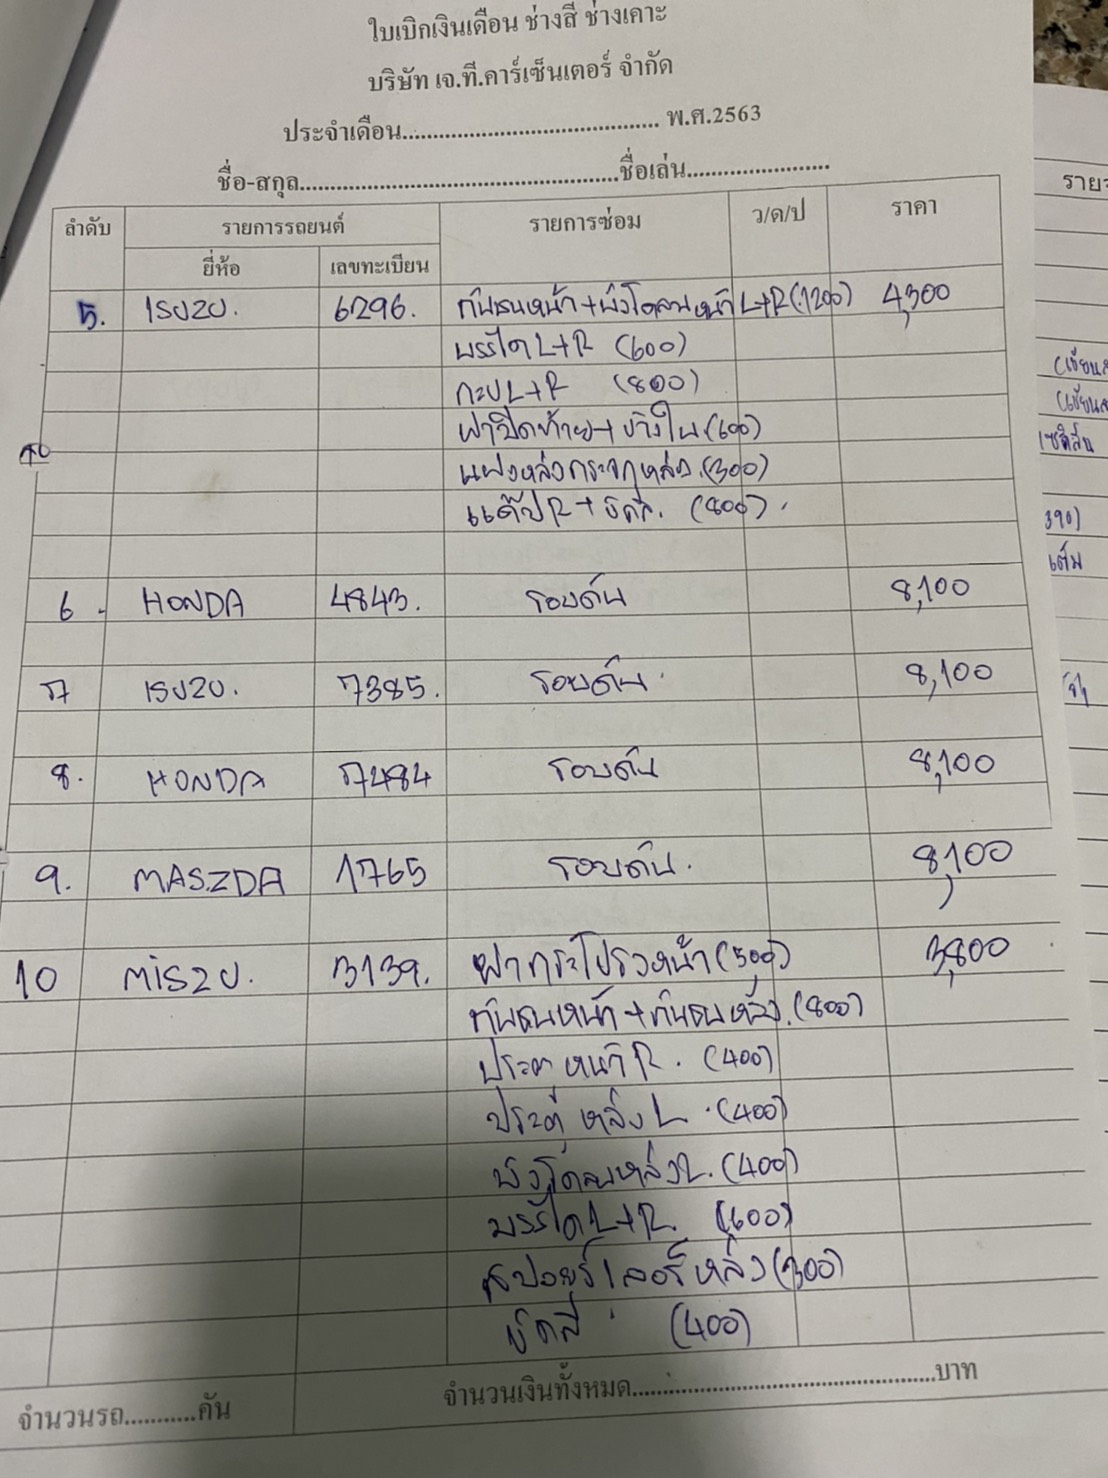 ใบเบิกเงินเดือน ช่างสี ช่างเคาะ
บริษัท เจ.ที.คาร์เซ็นเตอร์ จำกัด
ประจำเดือน....................................... พ.ศ.2563
ชื่อ-สกุล................................................ชื่อเล่น......................
ลำดับ รายการรถยนต์ รายการซ่อม ว/ด/ป ราคา
ยี่ห้อ เลขทะเบียน
5. ISUZU. 6296. กันชนหน้า+บังโคลนหน้า L+R(1200) 4,300
บรรได L+R (600)
กะบ L+R (800)
ฝาปิดท้าย+ข้างใน(600)
แผงหลังกระจกหลัง.(300)
แค๊ปR+ขัดสี. (800).
6. HONDA 4843. รอบคัน 8,100
7 ISUZU. 7385. รอบคัน. 8,100
8. HONDA 7484 รอบคัน 8,100
9. MASZDA 1765 รอบคัน. 8,100
10 MISZU. 3139. ฝากระโปรงหน้า(500) 3,800
กันชนหน้า+กันชนหลัง.(800)
ประตูหน้าR. (400)
ประตูหลัง L.(400)
บังโคลนหลังL.(400)
บรรไดL+R. (600)
สปอยร์เลอร์หลัง(300)
ขัดสี (400)
จำนวนรถ...........คัน จำนวนเงินทั้งหมด..............................................บาท
รายจ
(เขียนส
(เขียนส
390)
เต็ม